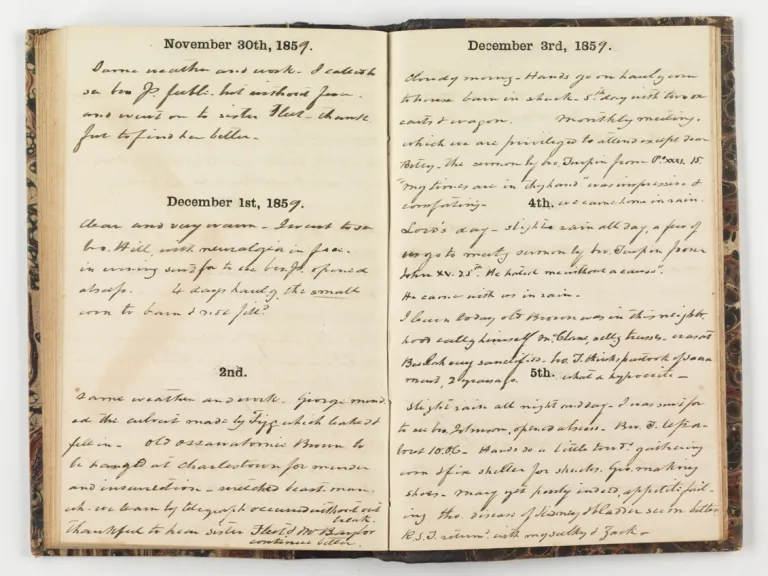 November 30th, 1859.
Same weather and work. I called to
see bro Js. feeble. but without fever.
and went on to sister Fleet - thank-
ful to find her better -
December 1st, 1859.
Clear and very warm - I went to see
bro. Hill, with neuralgia in face.
in evening sent for to see bro. Js. opened
abscess. 4 days hauling the small
corn to barn & nice fill'd
2nd.
Same weather and work. George mend-
ed the culvert made by which leaked &
fell in - Old Ossawatomie Brown to
be hanged at Charlestown for murder
and insurrection - wretched beast-man.
wh. we learn by telegraph occurred without out
break.
Thankful to hear sister Fleet & Mr Baylor
continue better.
December 3rd, 1859.
Cloudy morng - Hands go on haulg corn
to house barn in shuck. 5th day with two ox
carts & wagon. Monthly meeting.
which we are privileged to attend except dear
Betsy - the sermon by bro. Turpin from Ps. xxxi. 15
"My times are in thy hand" was impressive &
comforting - 4th. we came home in rain.
Lord's day - slight rain all day, a few of
us go to meetg sermon by bro. Turpin from
John XV. 25th "He hated me without a cause".
He came with us in rain.
I learn today old Brown was in this neighbor-
hood callg himself Mc Clane, sellg trusses - was at
very sanctified - bro. T. thinks partook of sacra
ment, 2 years ago. what a hypocrite -
5th.
Slight rain all night and day - I was sent for
to see bro Johnson, opened abscess - Bro. T. left a-
bout 10.06 - Hands do a little towds gathering
corn & fix shelter for shucks. Geo. making
shoes - Mary yet poorly indeed, appetite fail-
ing tho. disease of kidney & bladder seem better
R. S. T. return'd with my sulky & Jack -